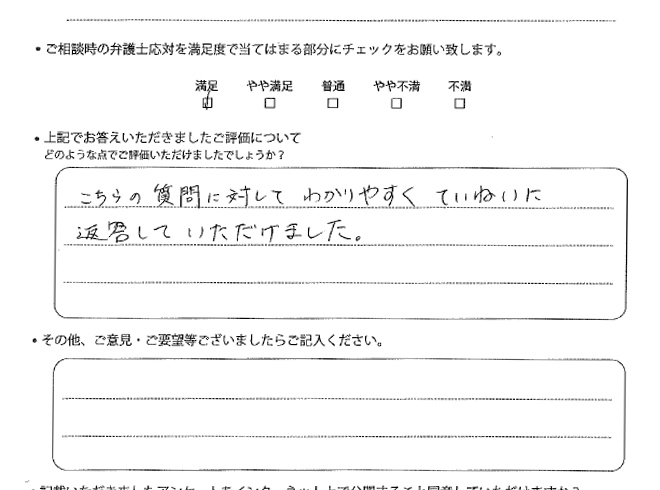 • ご相談時の弁護士応対を満足度で当てはまる部分にチェックをお願い致します。
満足 やや満足 普通 やや不満 不満
• 上記でお答えいただきましたご評価について
どのような点でご評価いただけましたでしょうか？
こちらの質問に対して わかりやすく ていねいに
返答して いただけました。
• その他、ご意見・ご要望等ございましたらご記入ください。